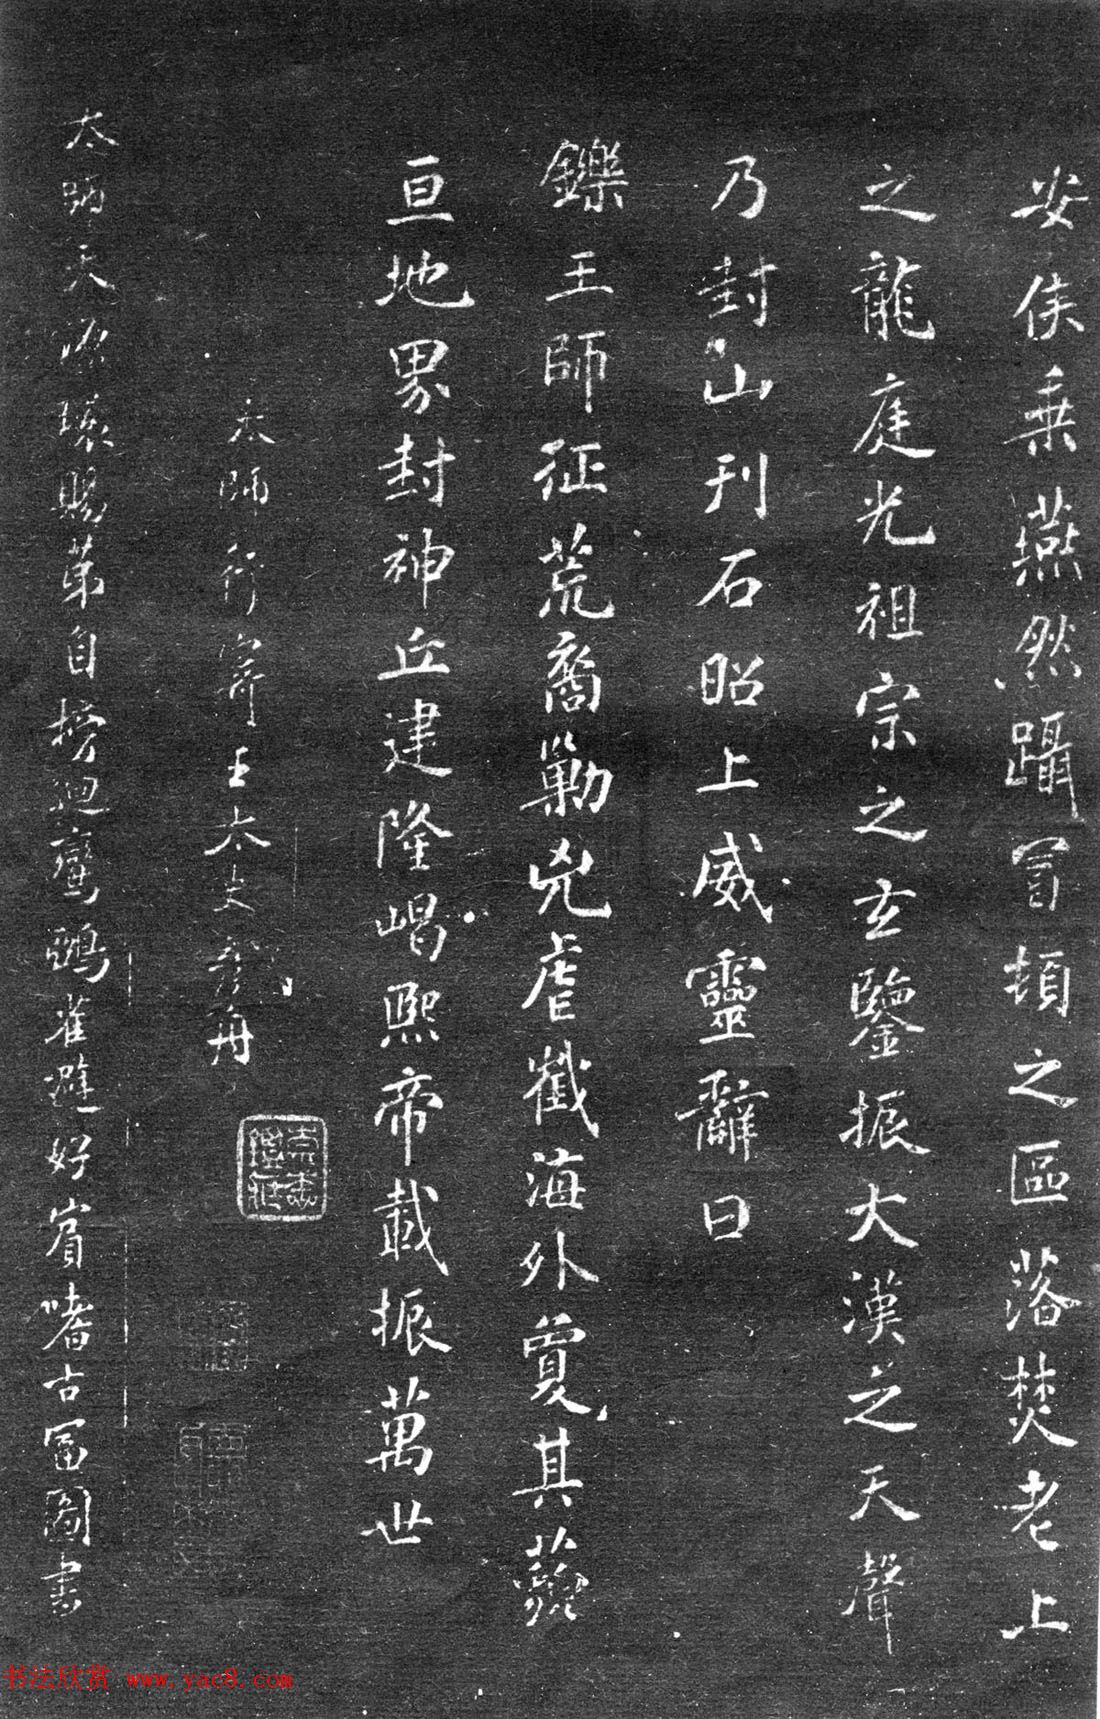 安侯乗燕然躡冒頓之區落焚老上
之龍庭光祖宗之玄鑒振大漢之天聲
乃封山刊石昭上威靈辭曰
鑠王師征荒裔勦兇虐截海外敻其藐
亘地界封神丘建隆嵑熙帝載振萬世
太師行寄王太史彥舟
太師天源環賜第自榜迴鸞鵶雀避好賓嗜古冨圖書
书法欣赏 www.yac8.com